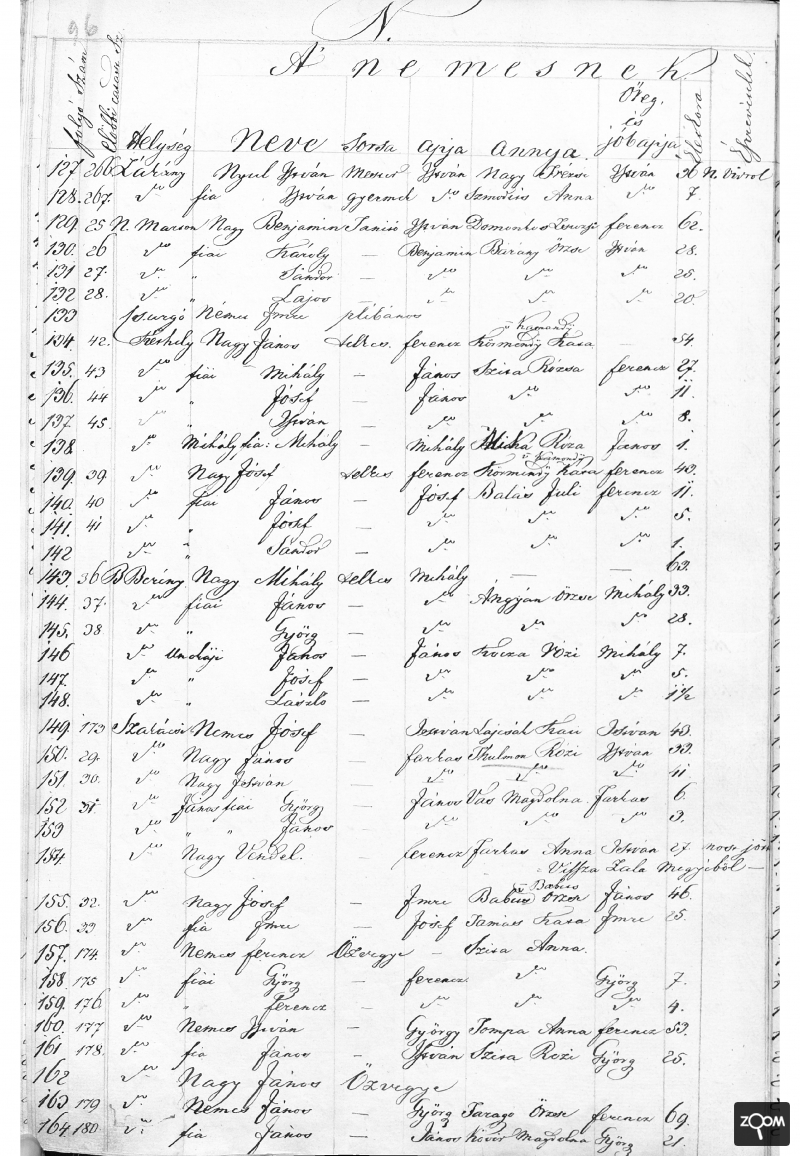 96
N.
A' nemesnek
folyó Szám
Előbbi családi Sz.
Helység Neve Sorsa apja annya Öreg és jóbapja Élet kora Észrevétel
127 266 Zárány Nyul István Nemes István Nagy Trézsi István 36 N. Várol
128. 267. do fia István gyermek do Szmodics Anna do 7
129. 25 N. Marson Nagy Benjamin Tanító István Domonkos Zsuzsi ferencz 62.
130. 26 do fiai Károly — Benjamin Bárány Örzse István 28.
131 27. do " Sándor — do do do 25.
132 28. do " Lajos — do do do 20.
133 Csurgó Nemes Imre plébános
134 42. Keethely Nagy János telkes ferencz Körmendy Kata — 54.
v Karmondy
135. 43 do fiai Mihály — János Szita Rózsa ferencz 27.
136. 44 do " Jósef — János do do 11.
137. 45. do " István — do do do 8.
138 do Mihály fia: Mihály — Mihály Mika Roza Janos 1.
v Karmondy
139. 39. do Nagy Jósef telkes ferencz Körmendy Kata ferencz 43.
140. 40 do fiai János — Jósef Balás Juli ferencz 11.
141. 41 do " Jósef — do do do 5.
142 do " Sándor — do do do 1.
143. 36 B Berény Nagy Mihály telkes Mihály — — 63.
144. 37. do fiai János — do Angyán Örzse Mihály 33.
145. 38. do " Györg — do do do 28.
146 do Unokáji János — János Kocza Rózi Mihály 7.
147. do " Jósef — do do do 5.
148. do " László — do do do 1 1/2
149. 173 Szakácsi Nemes Jósef — Istvan Lajcsák Kati István 43.
150. 29. do Nagy János — farkas Thulmon Rózi István 33.
151. 30. do Nagy Istiván — do do do 41.
152 31. do János fiai György — János Vas Magdolna Farkas 6.
153 do " " János — do do do 3.
154. do Nagy Vendel. — ferencz Farkas Anna István 27. most jött
Vissza Zala Megyéből —
v Babics
155. 32. do Nagy Jósef — Imre Babus Örzse János 46.
156. 33 do fia Imre — Jósef Tamás Kata Imre 25.
157. 174. do Nemes ferencz Özvegye — Szita Anna.
158. 175 do fiai Györg — ferencz do Györg 7.
159. 176 do " Ferencz — do do do 4.
160. 177 do Nemes István — György Tompa Anna ferencz 53.
161 178. do fia János — István Szita Rozi Györg 25.
162 do Nagy János Özvegye
163 179 do Nemes János — Györg Farago Örzse ferencz 69.
164. 180 do fia János — János Kövér Magdolna Györg 21.
ZOOM